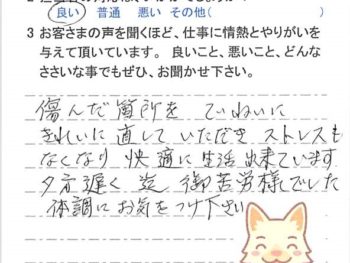 良い 普通 悪い その他(
3 お客さまの声を聞くほど、仕事に情熱とやりがいを
与えて頂いています。 良いこと、悪いこと、どんな
ささいな事でもぜひ、お聞かせ下さい。
傷んだ箇所を ていねいに
きれいに 直して いただき ストレスも
なくなり 快適に生活 出来ています
夕方遅く 迄 御苦労様でした
体調に お気をつけ下さい